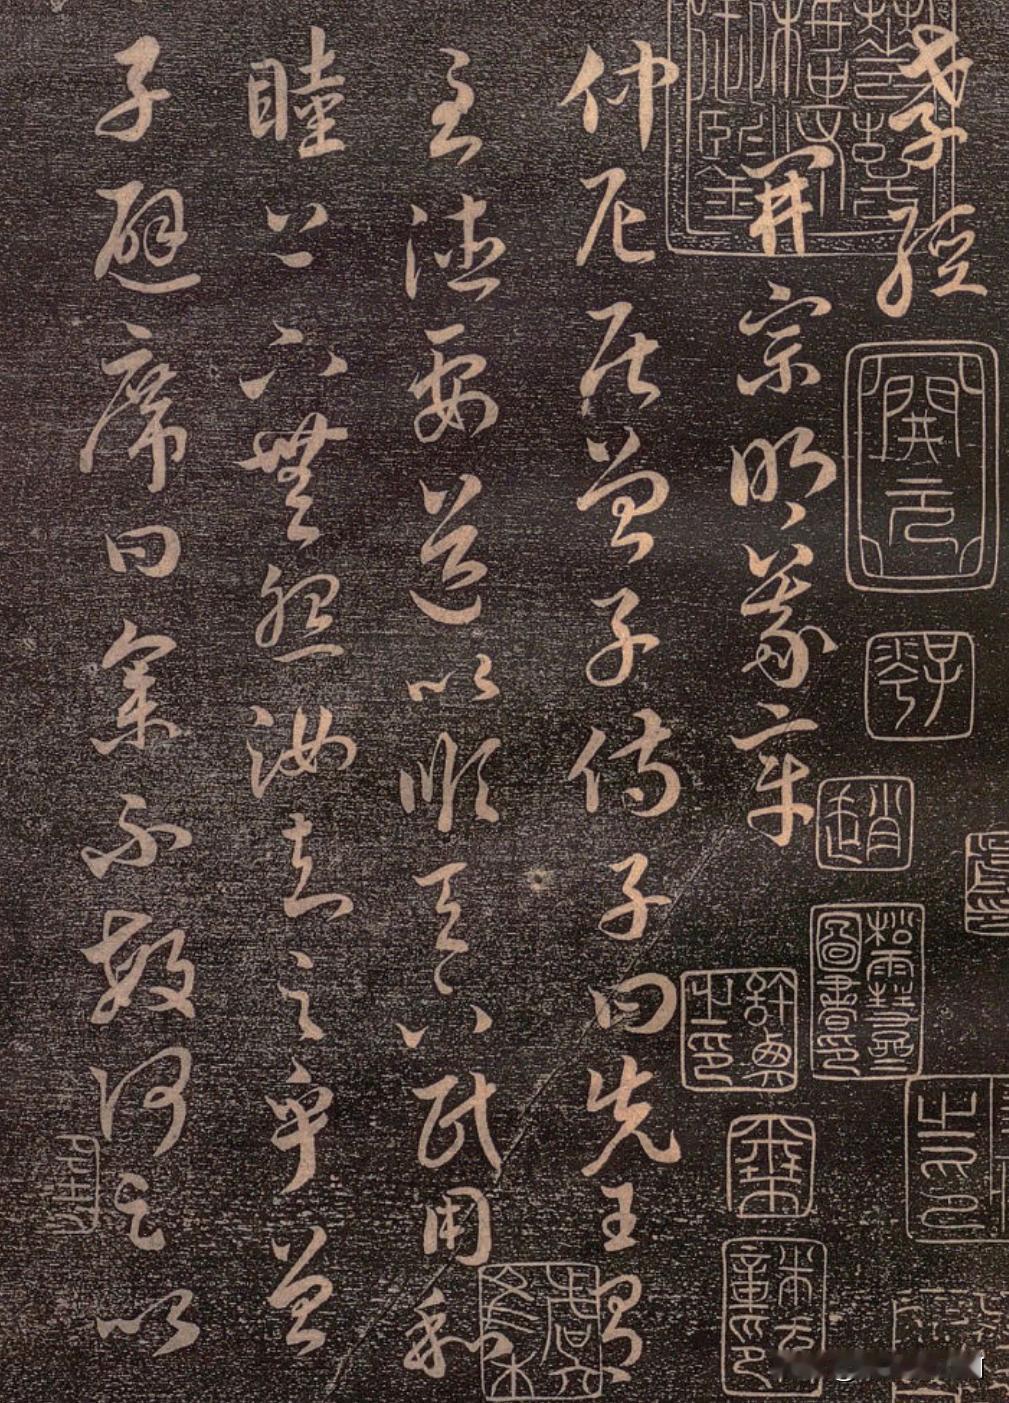 孝經
開宗明義章
仲尼居曾子侍子曰先王有
至德要道以順天下民用和
睦上下無怨汝知之乎曾
子避席曰參不敏何足以
開元
趙
松雪齋圖書印